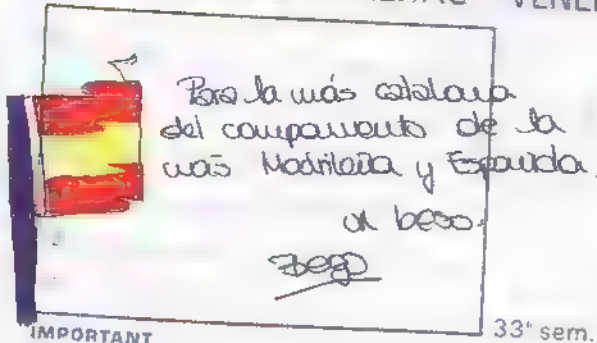 Para la más catalana
del campamento de la
más Madrileña y Española.
un beso.
Bego
IMPORTANT
33ª sem.